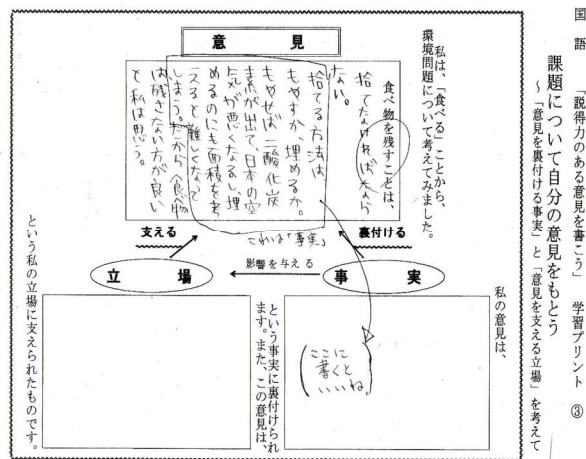 国語　「説得力のある意見を書こう」　学習プリント　③
課題について自分の意見をもとう
～「意見を裏付ける事実」と「意見を支える立場」を考えて
私は、「食べる」ことから、
環境問題について考えてみました。
意見
食べ物を残すことは、
捨てなければならない
ない。
捨てる方法は、
もやすか、埋めるか。
もやせば二酸化炭
素が出て、日本の空
気が悪くなるし、埋
めるのにも面積を考
えると難しくなって
しまう。だから、食べ物
は残さない方が良い
と私は思う。
これは「事実」
支える
裏付ける
立場
影響を与える
事実
私の意見は、
ここに
書くと
いいね。
という事実に裏付けられ
ます。また、この意見は、
という私の立場に支えられたものです。